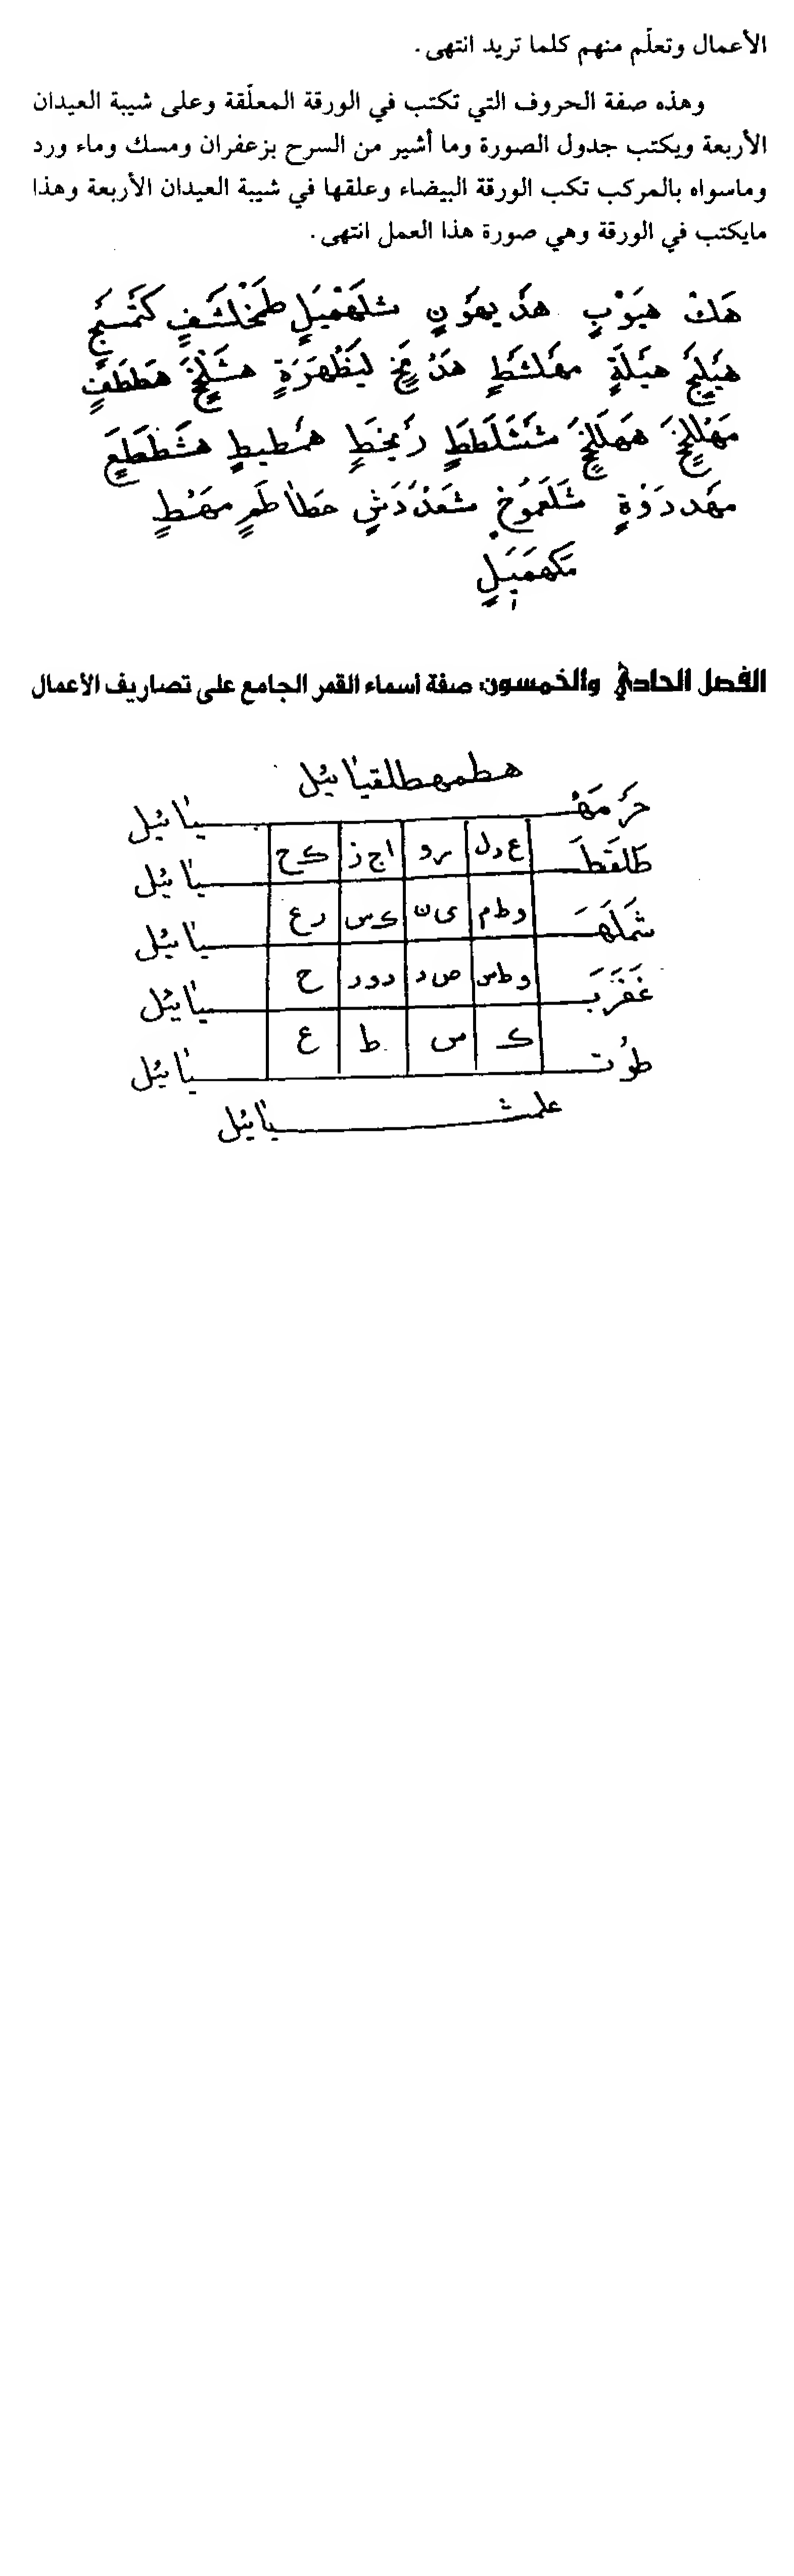 الأعمال وتعلّم منهم كلما تريد انتهى.
وهذه صفة الحروف التي تكتب في الورقة المعلّقة وعلى شيبة العيدان
الأربعة ويكتب جدول الصورة وما أشير من السرح بزعفران ومسك وماء ورد
وماسواه بالمركب تكب الورقة البيضاء وعلقها في شيبة العيدان الأربعة وهذا
مايكتب في الورقة وهي صورة هذا العمل انتهى.
هَكْ هيَوْبٍ هدَ يهوَنٍ شلَهْميَلٍ طمَخْلشَفٍ
هيَلَةٍ مهَلشَطٍ ليَظْهَرَةٍ هَططَفٍ
شَشَلَططٍ همَطيطٍ هشَططَعٍ
مهَددَوْةٍ شلَعَموُخْ مهَطٍ
الفصل الحادي والخمسون: صفة أسماء القمر الجامع على تصاريف الأعمال
هطمهطلقيائيل
حرَمَهْ يائيل
ع دل | رو | اج ز | ك ح
طلَقَطَ يائيل
وط م | ى ن | ك س | رع
شمَلَهَ يائيل
وط س | ص د | دور | ح
غفَرَبَ يائيل
ك | س | ط | ع
طوُت يائيل
علمث يائيل